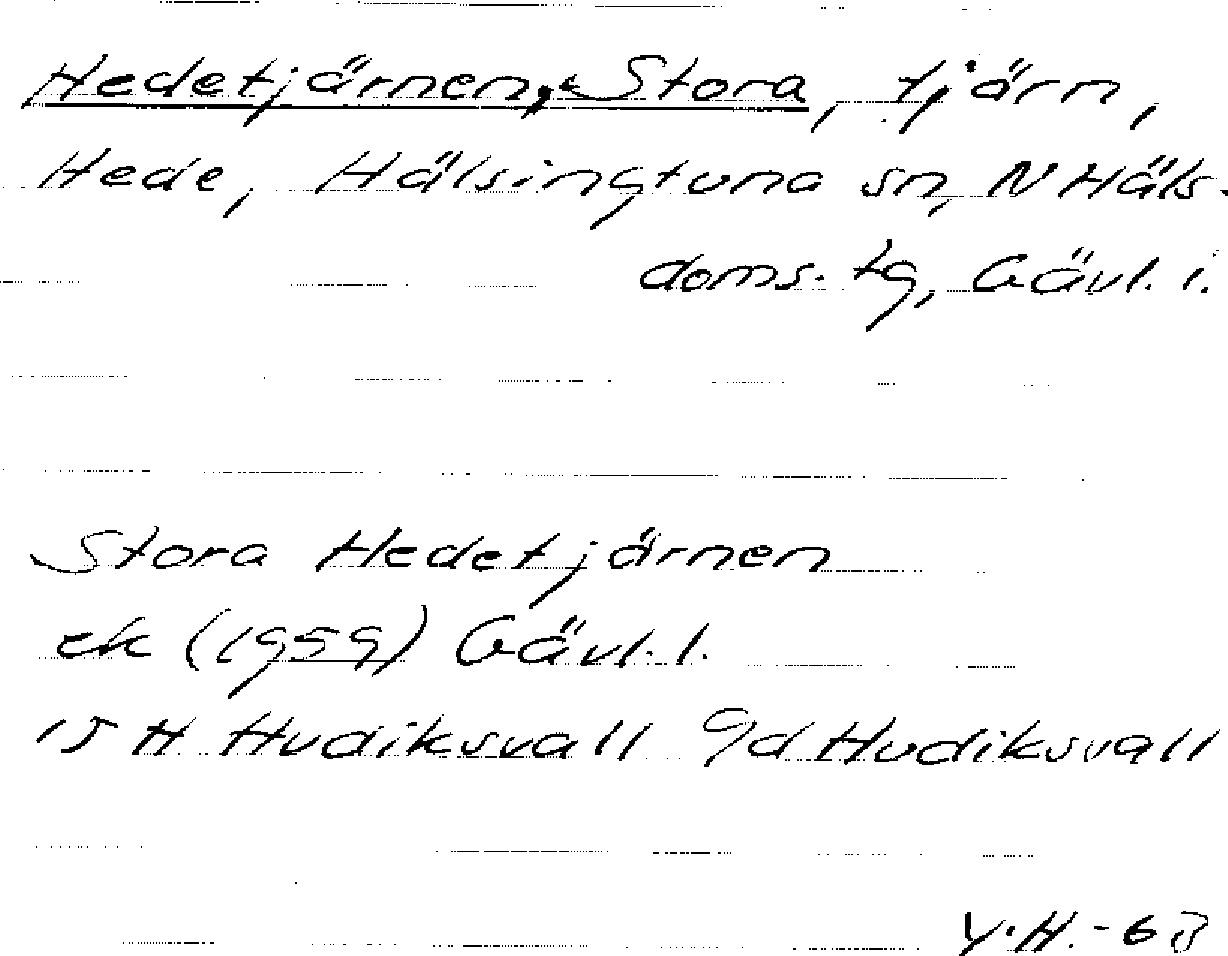 Hedetjärnen, Stora, tjärn,
Hede, Hälsingtuna sn, N Häls.
doms. tg, Gävl. l.
Stora Hedetjärnen
ek (1959) Gävl. l.
15 H Hudiksvall 9d Hudiksvall
Y.H. - 63